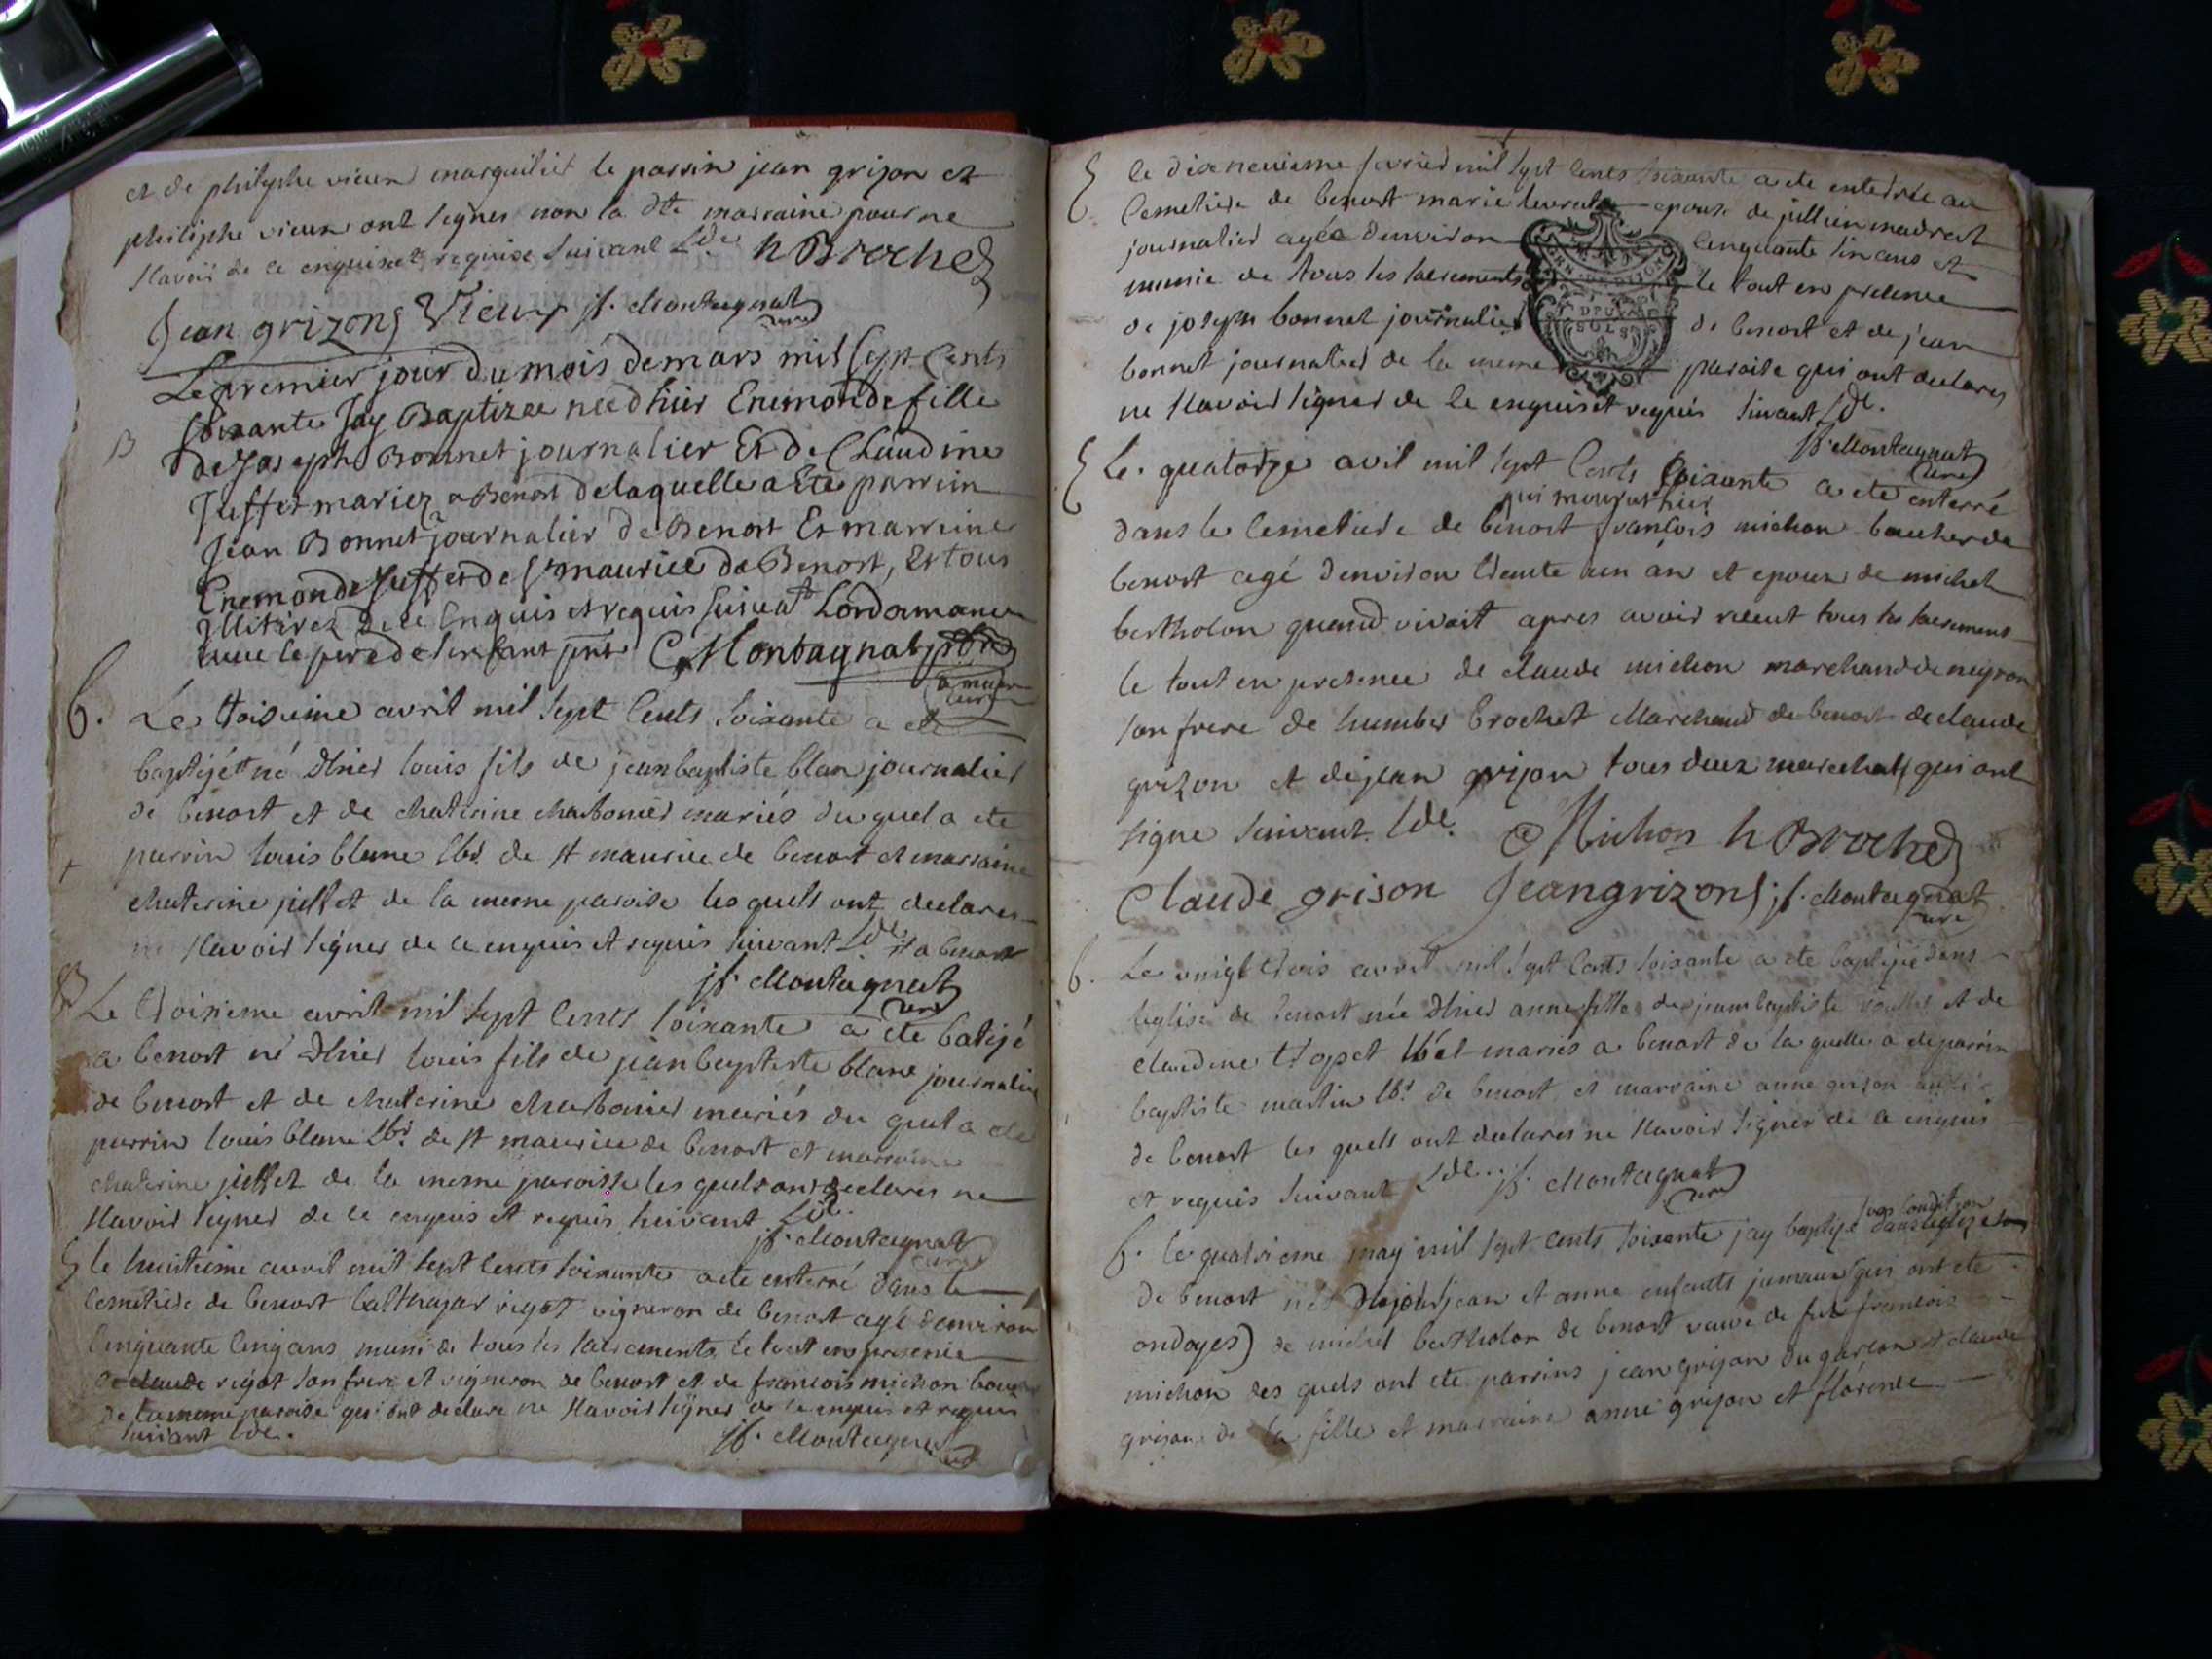 et de philiphe vieux marguilier le parrin jean grizon et
philiphe vieux ont signes non la dte marraine pour ne
scavoir de ce enquise et requise suivant Lde h Broched
Jean grizong Vieux jf. Montagnat
curé
Le premier jour du mois de mars mil sept cents
soixante Jay Baptizee née d'hier Enemonde fille
B
de Joseph Bonnet journalier Et de Claudine
Juffet mariez a Benost de laquelle a Ete parrein
Jean Bonnet journalier de Benost Et marreine
Enemonde Juffet de st maurice de Benost, Et tous
Illitirez De ce Enquis et requis suivat Lordonnance
avec le pere de lenfant pnt C Montagnat
b. Le troisieme avril mil sept cents soixante a ete
baptisé né dhier louis fils de jean baptiste blan journalier
de benost et de chaterine charbonier mariés du quel a ete
parrin louis blanc lbr de st maurice de benost et marraine
chaterine juffet de la meme paroise les quels ont declares
ne scavoir signer de ce enquis et requis suivant Lde
jf. Montagnat
curé
B Le troisieme avril mil sept cents soixante a ete batisé
a benost né dhier louis fils de jean baptiste blanc journalier
de benost et de chaterine charbonier mariés du quel a ete
parrin louis blanc lbr de st maurice de benost et marraine
chaterine juffet de la meme paroisse les quels ont declares ne
scavoir signer de ce enquis et requis suivant Lde.
jf. Montagnat
curé
le huitieme avril mil sept cents soixante a ete enterré dans le
cemetiere de benost balthazar rigot vigneron de benost agé denviron
cinquante cinq ans muni de tous les sacrements le tout en presence
de claude rigot son frere et vigneron de benost et de francois michon
de la meme paroise qui ont declare ne scavoir signer de ce enquis et requis
suivant Lde.
jf. Montagnat
le dixneuvieme fevrier mil sept cents soixante a ete enterrée au
cemetiere de benost marie epouse de jullien
journalier agée denviron cinquante cinc ans et
munie de tous les sacrements le tout en presence
de joseph bonnet journalier de benost et de jean
bonnet journalier de la meme paroise qui ont declares
ne scavoir signer de ce enquis et requis suivant Lde.
jf. Montagnat
curé
Le quatorze avil mil sept cents soixante a ete enterré
qui mourut hier
dans le cemetiere de benost francois michon boucher de
benost agé denviron trente un an et epoux de michel
bertholon quand vivoit apres avoir receut tous les sacrements
le tout en presence de claude michon marchand de neyron
son frere de humber brochet Marchand de benost de claude
grizon et de jean grizon tous deux marechals qui ont
signe suivant Lde. C Michon h Broched
Claude grison Jean grizong jf. Montagnat
curé
b. Le vingt trois avril mil sept cents soixante a ete baptisée dans
leglise de benost née dhier anne fille de jean baptiste et de
claudine mariés a benost de la quelle a ete parrin
baptiste martin lbr de benost et marraine anne grison
de benost les quels ont declares ne scavoir signer de ce enquis
et requis suivant Lde. jf. Montagnat
curé
sous condition
b. le quatrieme may mil sept cents soixante jay baptisé dans leglize
de benost nés jean et anne enfants jumaux (qui ont ete
ondoyes) de michel bertholon de benost veuve de feu francois
michon des quels ont ete parrins jean grizon du garcon et claude
grizon de la fille et marraine anne grizon et florence